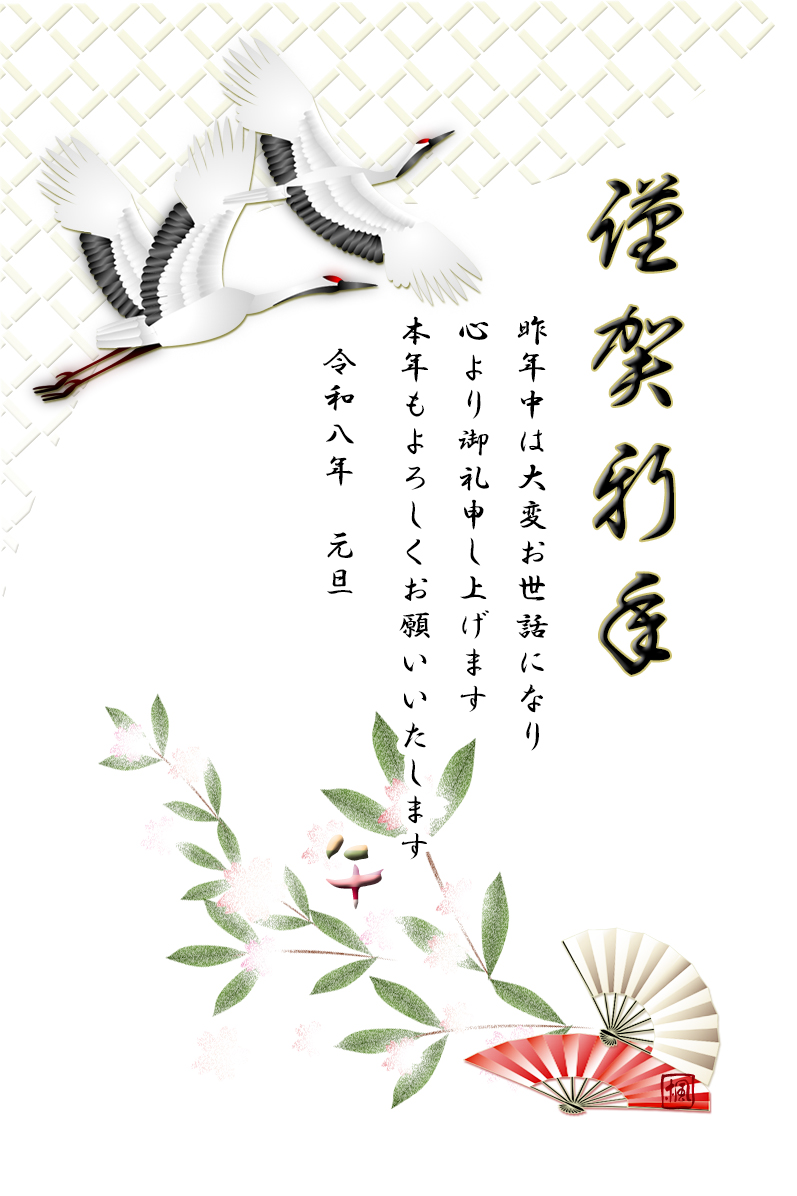 謹賀新年
昨年中は大変お世話になり
心より御礼申し上げます
本年もよろしくお願いいたします
令和八年　元旦
午
楓